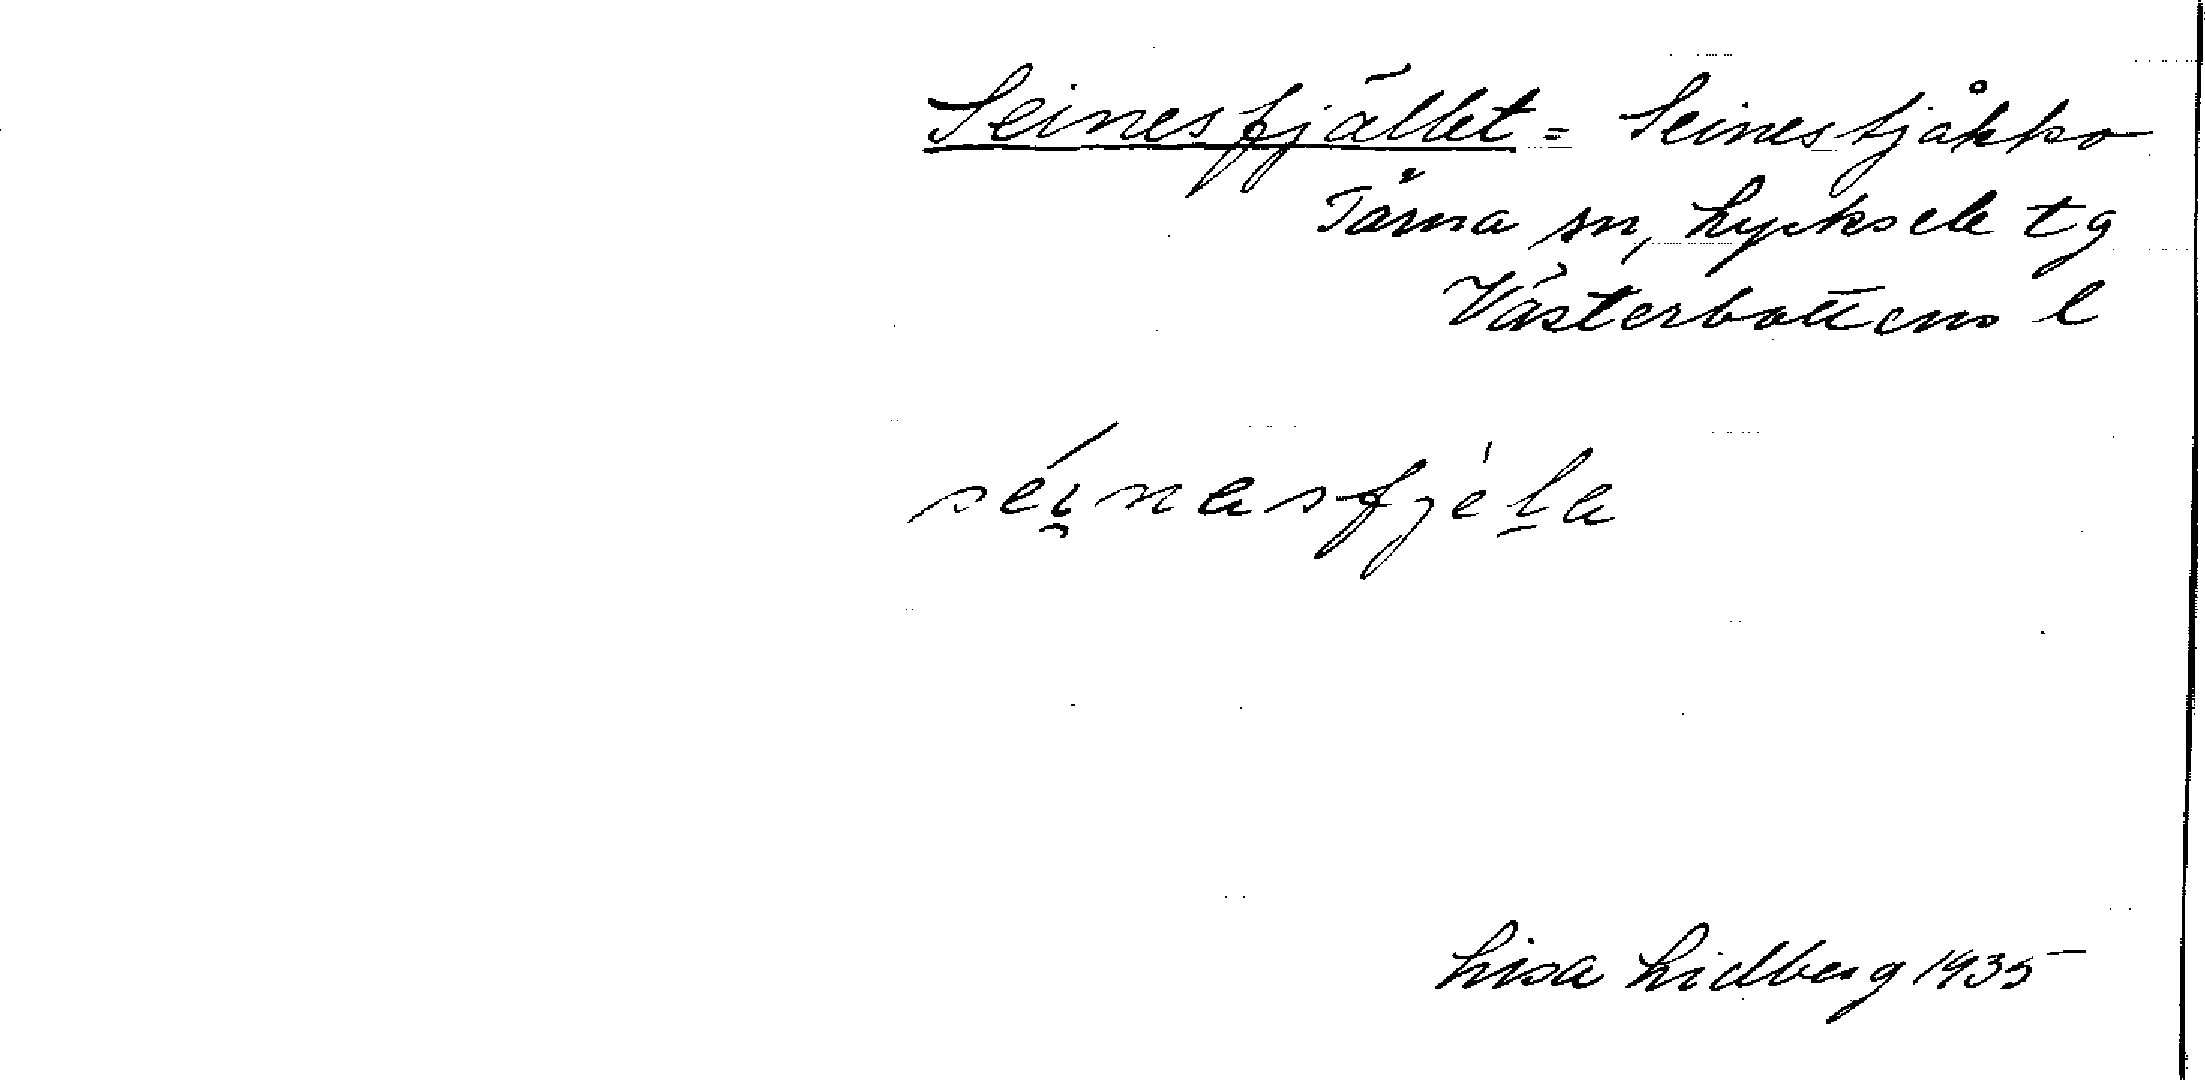 Seinesfjället = Seinestjåkko
Tärna sn, Lycksele tg
Västerbottens l
séi̯nasfjèl̠a
Lisa Lidberg 1935